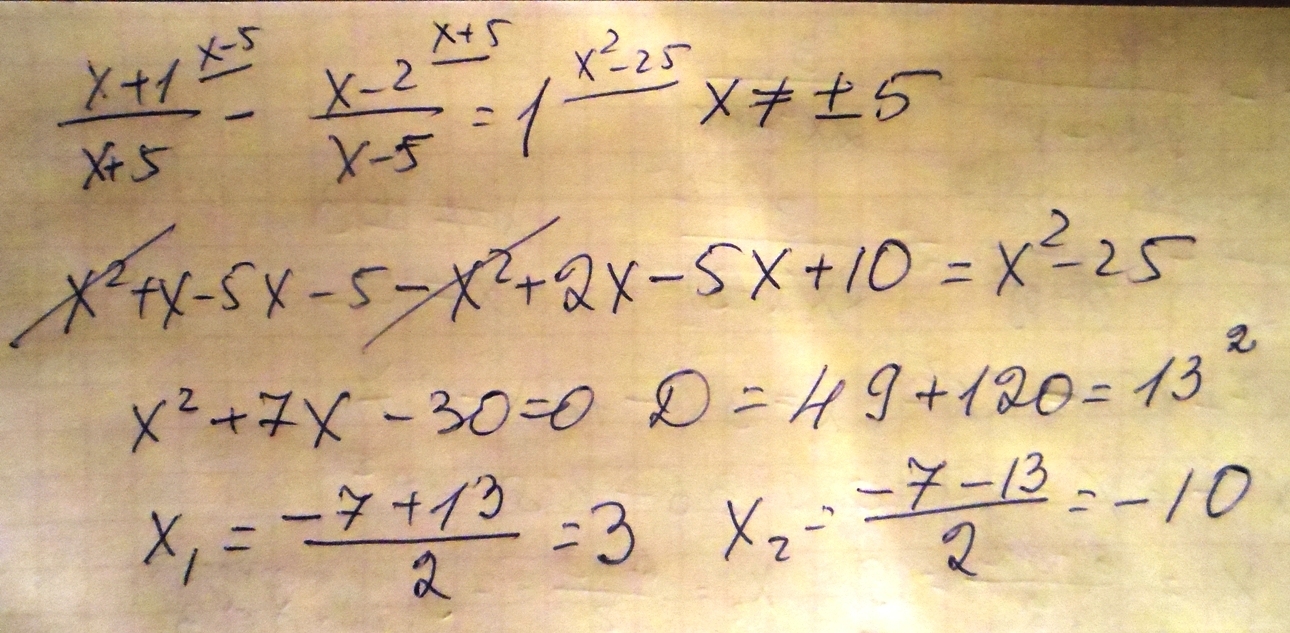 (x+1)/(x+5)^(x-5) - (x-2)/(x-5)^(x+5) = 1^(x²-25) x ≠ ± 5
x²+x-5x-5-x²+2x-5x+10=x²-25
x²+7x-30=0 D=49+120=13²
x₁=(-7+13)/2=3 x₂=(-7-13)/2=-10